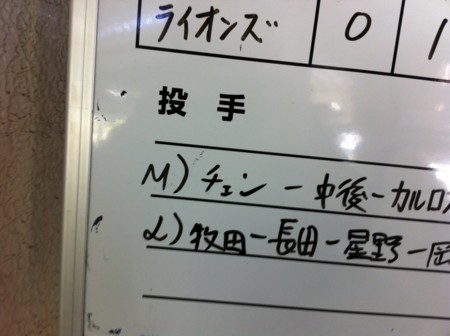 ライオンズ 0 1
投手
M) チェン-中後-カルロス
L) 牧田-長田-星野-岡